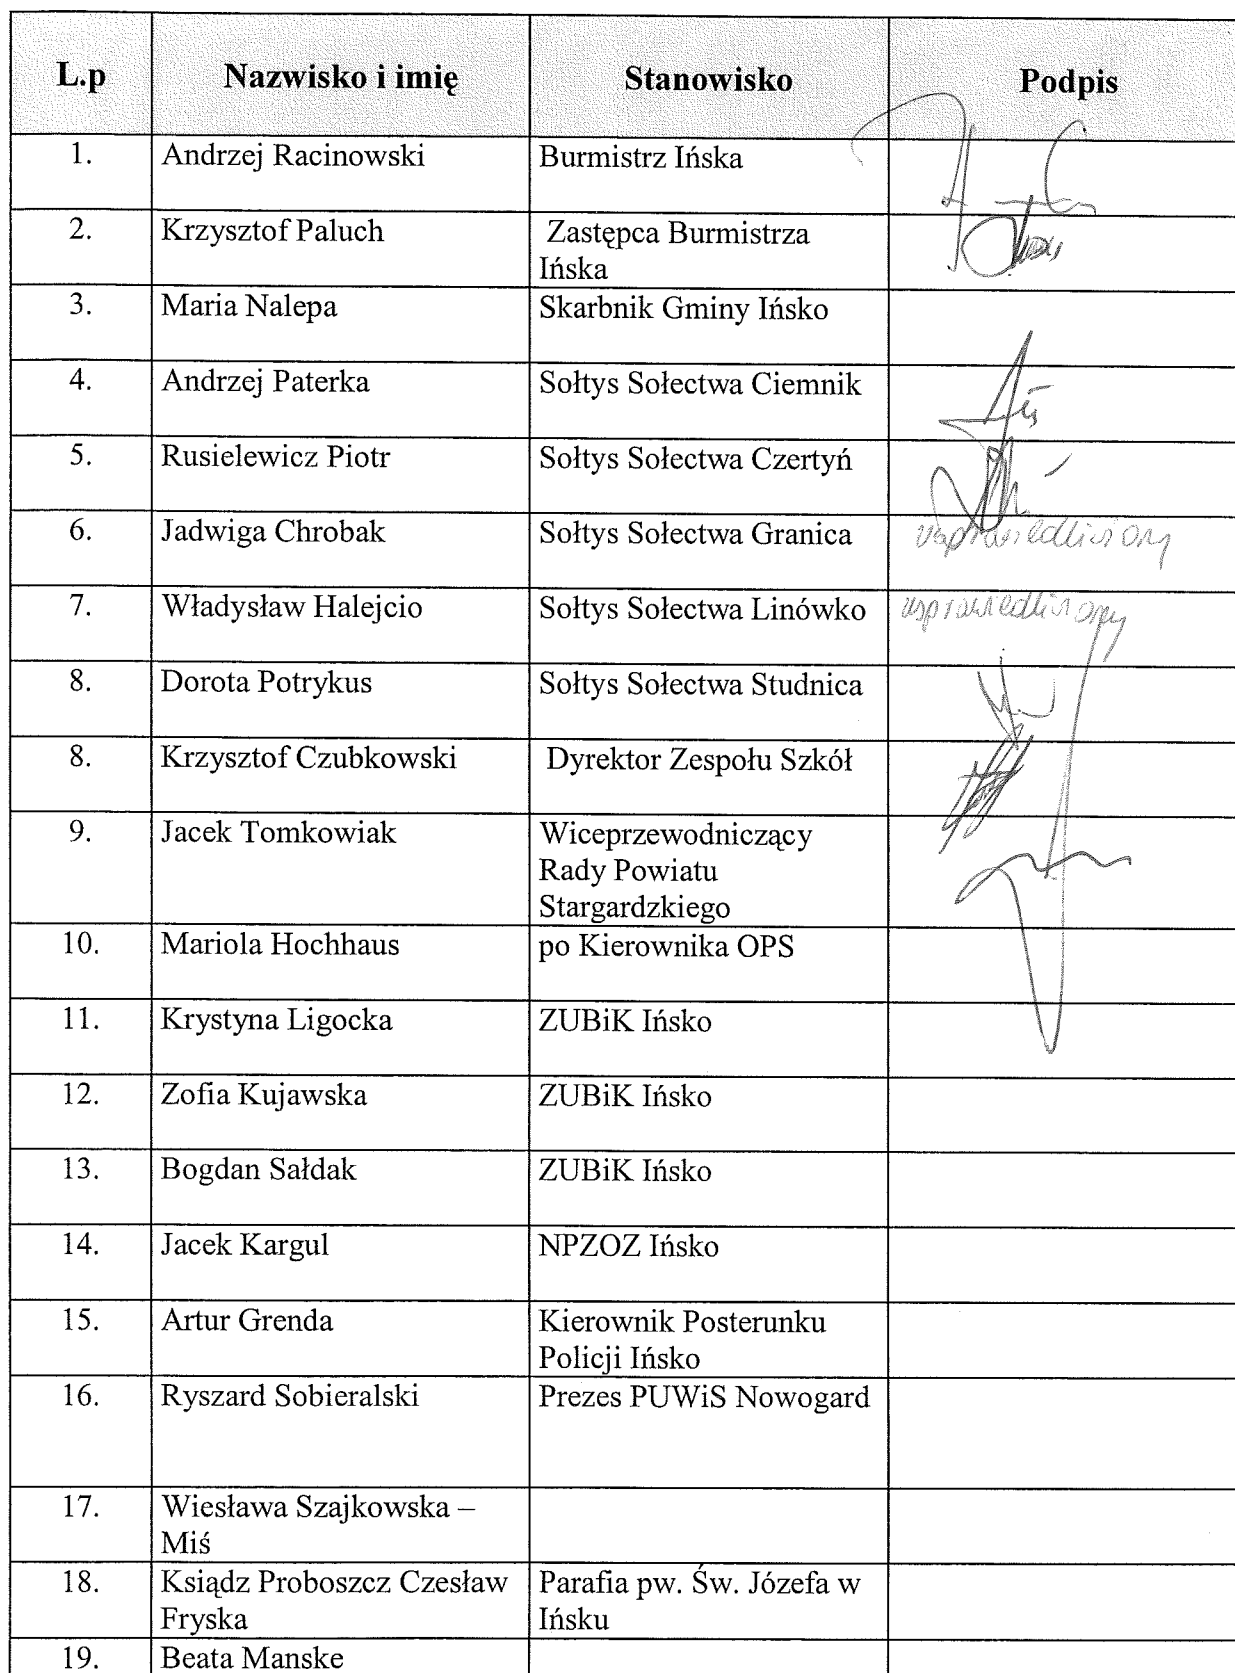 L.p Nazwisko i imię Stanowisko Podpis
1. Andrzej Racinowski Burmistrz Ińska
2. Krzysztof Paluch Zastępca Burmistrza
Ińska
3. Maria Nalepa Skarbnik Gminy Ińsko
4. Andrzej Paterka Sołtys Sołectwa Ciemnik
5. Rusielewicz Piotr Sołtys Sołectwa Czertyń
6. Jadwiga Chrobak Sołtys Sołectwa Granica usprawiedliwiony
7. Władysław Halejcio Sołtys Sołectwa Linówko usprawiedliwiony
8. Dorota Potrykus Sołtys Sołectwa Studnica
8. Krzysztof Czubkowski Dyrektor Zespołu Szkół
9. Jacek Tomkowiak Wiceprzewodniczący
Rady Powiatu
Stargardzkiego
10. Mariola Hochhaus po Kierownika OPS
11. Krystyna Ligocka ZUBiK Ińsko
12. Zofia Kujawska ZUBiK Ińsko
13. Bogdan Sałdak ZUBiK Ińsko
14. Jacek Kargul NPZOZ Ińsko
15. Artur Grenda Kierownik Posterunku
Policji Ińsko
16. Ryszard Sobieralski Prezes PUWiS Nowogard
17. Wiesława Szajkowska –
Miś
18. Ksiądz Proboszcz Czesław Parafia pw. Św. Józefa w
Fryska Ińsku
19. Beata Manske